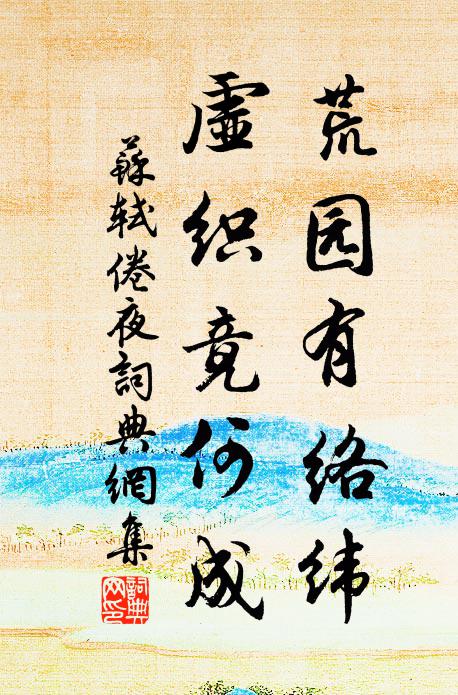 荒园有络纬
虚织竟何成
蘇軾倦夜詞典網集
詞典網印